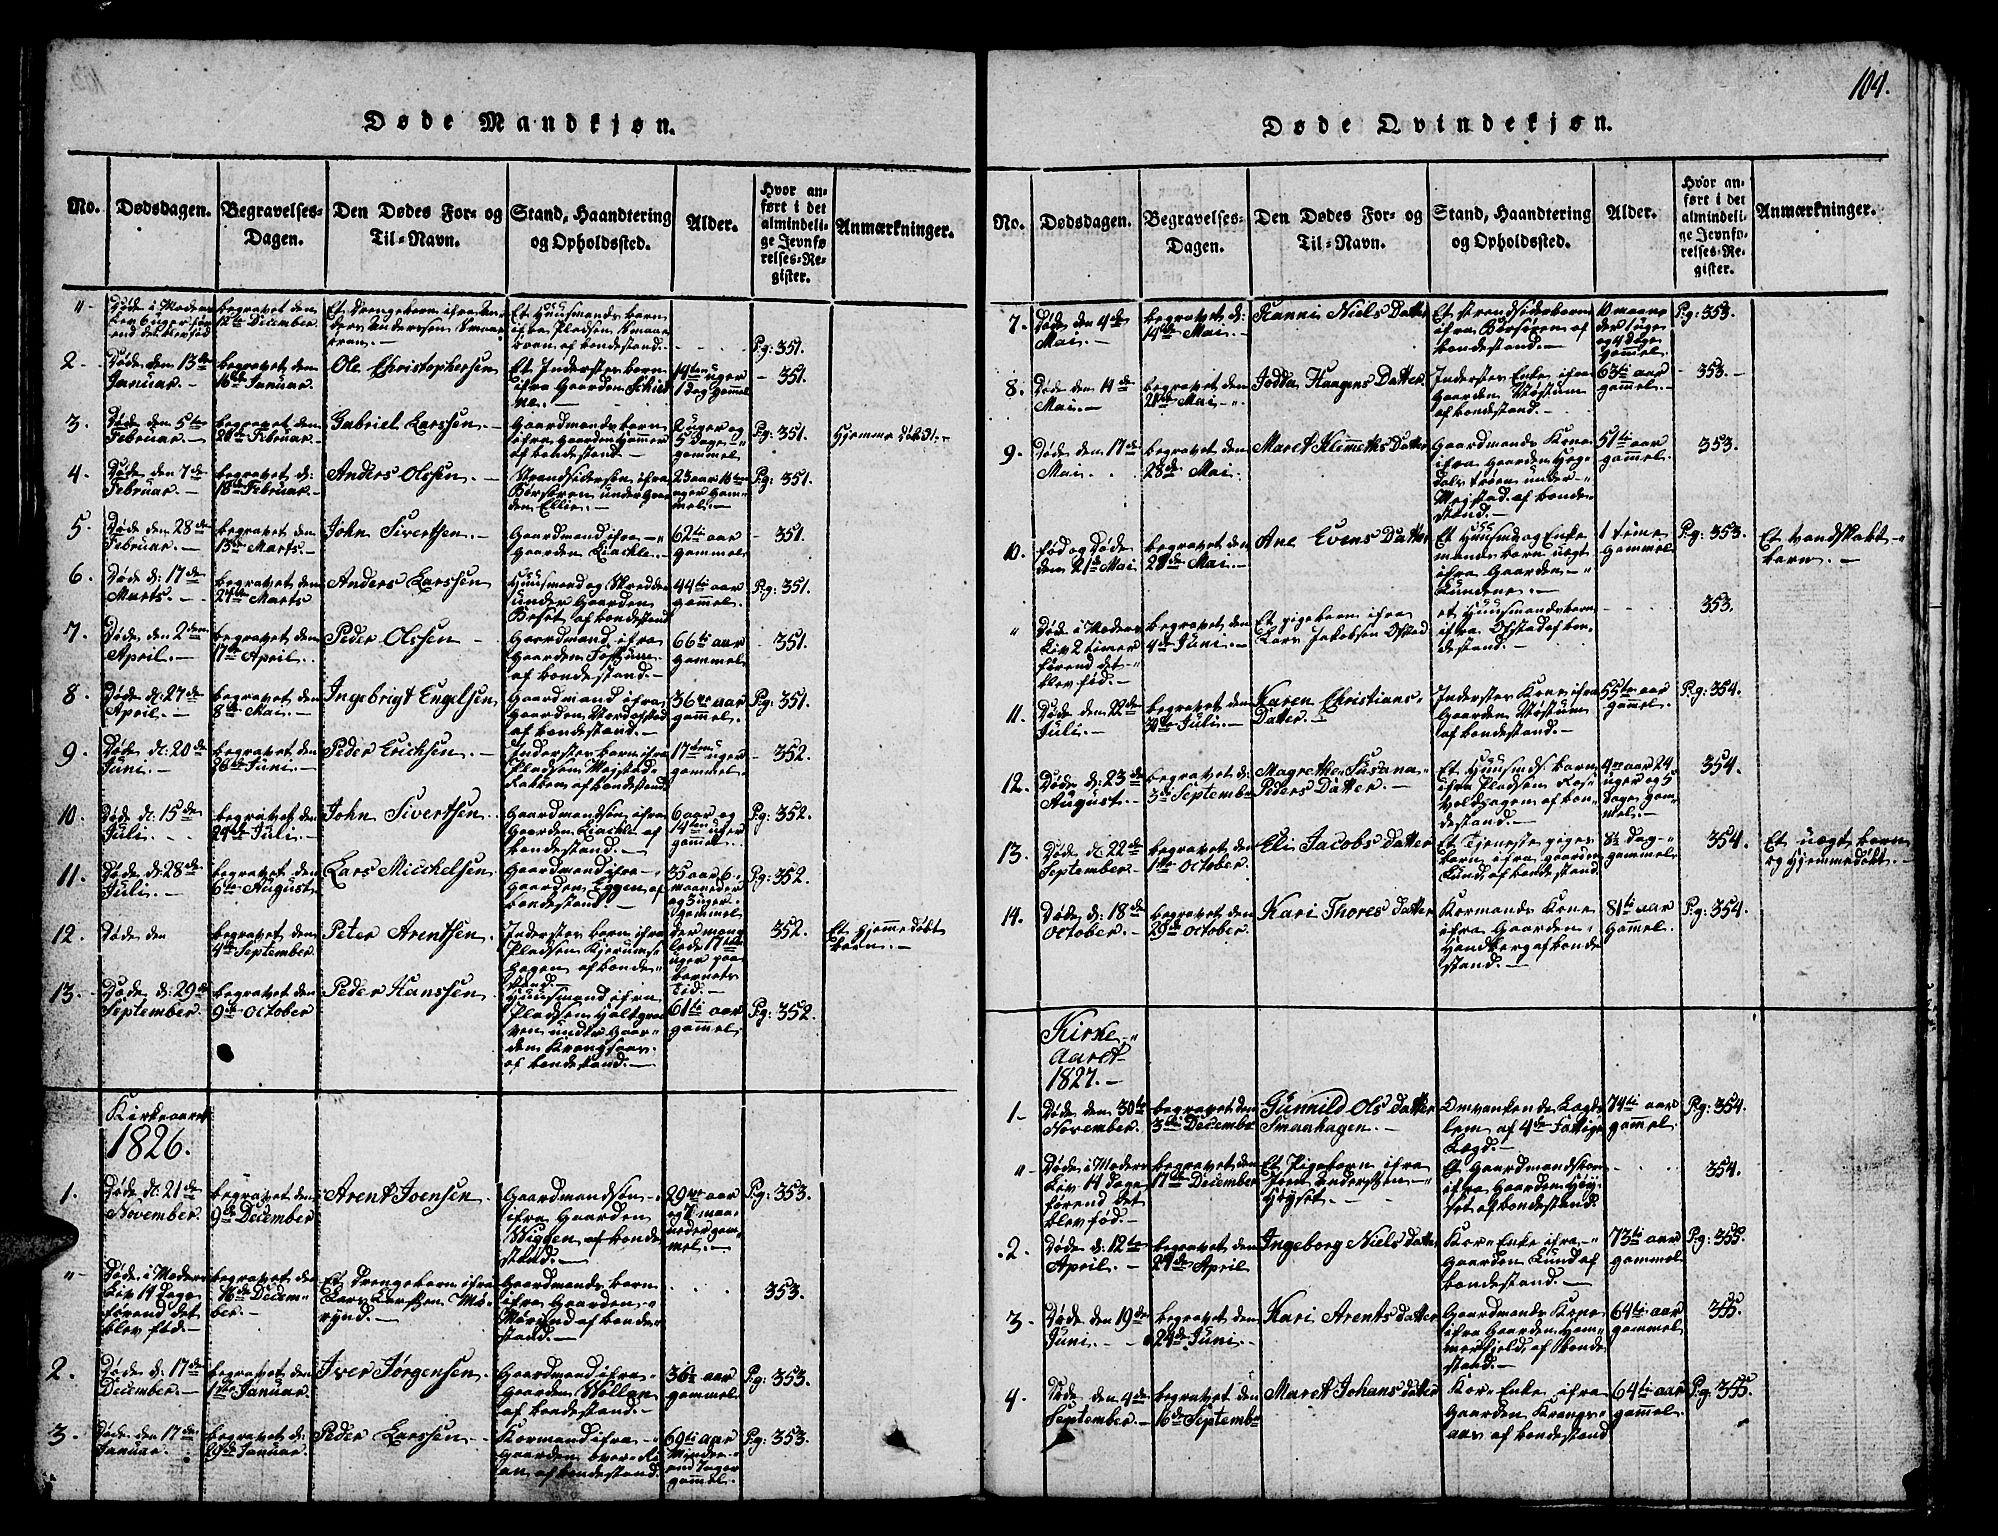 104.
Døde Mandkjøn.
No.
Dødsdagen.
Begravelses-
Dagen.
Den Dødes For- og
Til-Navn.
Stand, Haandtering
og Opholdssted.
Alder.
Hvor an-
ført i det
almindeli-
ge Jevnfø-
relses-Re-
gister.
Anmærkninger.
"-
Døde i Moders
Liv 6 uger for
end det blev fød
begravet den
12te December.
Et Drengebarn ifra An-
ders Andersen Smaae-
Et Huusmands barn
ifra Pladsen
af bondestand.-
Pg: 351.
2.
Døde den 13de
Januar.-
begravet den
16de Januar.
Ole Christophersen
Et Inderstes barn
ifra Gaarden
14ten uger
1 dag gammel
- 351.
3.
Døde den 5te
Februar.-
begravet den
20de Februar.
Gabriel Larssen.-
Gaardmands barn
ifra Gaarden Hammer
af bondestand.
2 uger og
5 Dage
gammel
Pg: 351.
Hjemme døbt.-
4.
Døde den 7de
Februar.-
begravet d:
18de Februar.-
Anders Olssen.-
Strandsidersøn ifra
Børsøren under Gaar-
den Ellie.-
23 aar 16ten
uger gam-
mel.-
Pg: 351.
5.
Døde den 28de
Februar.-
begravet den
13de Marts-
John Sivertsen.-
Gaardmand ifra-
Gaarden Liaekle.-
62ti aar
gammel
- 351.
6.
Døde d: 17de
Marts.-
begravet den
27de Marts
Anders Larssen
Huusmand og Skredder
under Gaarden
Børset af bondestand
44ti aar
gammel.
Pg: 351.
7.
Døde den 2den
April.-
begravet den
17de April.
Peder Olssen
Gaardmand ifra
Gaarden
af bondestand.-
66ti aar
gammel
- 351.
8.
Døde d: 27de
April.-
begravet den
8de Mai.-
Ingebrigt Engelsen
Gaardmand ifra
Gaarden
af bondestand.-
36 aar
gammel.
Pg: 351.
9.
Døde d: 20de
Juni.-
begravet den
26de Juni.-
Peder Erichsen.-
Inderstes barn ifra
Pladsen Mejstad-
af bondestand
17ten uger
gammel.
- 352.
10.
Døde d: 15de
Juli.
begravet den
24de Juli.-
John Sivertsen.-
Gaardmandsøn ifra
Gaarden Liaekle af
bondestand.-
6 aar og
14ten uger
gammel.
Pg: 352.
11.
Døde d: 28de
Juli.-
begravet den
6te August
Lars Micchelsen
Gaardmand ifra-
Gaarden Eggen af
bondestand.-
35 aar 6
maaneder
og 3 uger
gammel
Pg: 352.
12.
Døde den
begravet den
4de September
Peter Arentsen
Inderstes barn ifra
Pladsen
Hagen af bonde-
stand.-
352.
Et Hjemmedøbt
barn.-
13.
Døde d: 29de
September.
begravet den
9de October
Peder Hanssen
Huusmand ifra
Pladsen
under Gaar-
den Krangsaas.
af bondestand.-
61ti aar
gammel
Pg: 352.
Kirkeaaret
1826.
1.
Døde d: 21de
November.
begravet den
9de December
Arent Joensen
Gaardmandsøn
ifra Gaarden
Viggen af bonde
stand.-
29 aar
og 7 maa-
neder gam-
mel.-
Pg: 353.
"-
Døde i Moders
Liv 14 Dage
førend det
blev fød.-
begravet den
16de Decem-
ber.-
Et Drengebarn ifra
Lars Larssen Mø-
rynd.-
Gaardmands barn
ifra Gaarden
Mørynd af bonde-
stand.-
353.
2.
Døde d: 17de
December.-
begravet den
1ste Januar.
Iver Jørgensen.
Gaardmand ifra-
Gaarden Wollan
af bondestand.-
36te aar
gammel.
Pg: 353.
3.
Døde den 17de
Januar.
begravet den
Januar.
Peder Larssen.-
Kormand ifra-
gaarden
af bondestand.
69ti aar
gammel.
Pg: 353.
Døde Qvindekjøn.
No.
Dødsdagen.
Begravelses-
Dagen.
Den Dødes For- og
Til-Navn.
Stand, Haandtering
og Opholdssted.
Alder.
Hvor an-
ført i det
almindeli-
ge Jevnfø-
relses-Re-
gister.
Anmærkninger.
7.
Døde den 4de
Mai.-
begravet d:
14de Mai.-
Hanni Niels Datter
Et Strandsiderbarn
ifra Børsøren af
bondestand.-
gammel
Pg: 353.
8.
Døde den 14de
Mai.-
begravet den
21de Mai-"
Jodta Haagens Datter
Inderstes Enke ifra
Gaarden Møstum
af bondestand.-
63ti aar
gammel.-
- 353.-
9.
Døde den 17de
Mai.-
begravet den
28de Mai.
Maret Klemeths Datter
Gaardmands Kone
ifra Gaarden
under-
Mejstad af bonde-
stand.-
57ti aar
gammel.
353.
10.
Fød og Døde
den 21de Mai
begravet den
28de Mai.-
Ane Evens Datter
Et Huusmd og Enke
mands barn uegt
ifra Gaarden-
Lundene.-
1 time
gammel
Pg: 353.
Et vandskabt-
barn.-
"
Døde i Moders
Liv 2 timer
førend det-
blev fød.-
begravet den
4de Juni.-
Et pigebarn ifra
Lars Jakobsen Ofstad
et Huusmandsbarn
ifra Ofstad af bon-
destand.-
353.
11.
Døde den 22de
Juli.-
begravet den
30te Juli.-
Karen Christians-
Datter.-
Inderstes Kone ifra
Gaarden Møstum
af bondestand.-
55te aar
gammel.
Pg: 354.
12.
Døde d: 23de
August.-
begravet d:
3die September
Magrethe Susana
Peders Datter.-
Et Huusmds. barn
ifra Pladsen
af bon-
destand.-
4re aar 24
uger og 5
dage gam-
mel.-
354.
13.
Døde d: 22de
September.-
begravet den
1ste October.
Eli Jacobs Datter
Et Tjenestepiges
barn ifra gaarden
Lund af bondestand
8te dag-
gammel
354.
Et uægt barn
og Hjemmedøbt.-
14.
Døde d: 18de
October.-
begravet den
29de October
Kari Thores Datter
Kormands Kone
ifra Gaarden
af bonde
stand.-
81ti aar
gammel.
Pg: 354.
Kirke-
aaret
1827.-
1-
Døde den 30te
November.
begravet den
3die December
Gunnild Ols Datter
Smaahagen.-
Omvankende Lægds
lem af 4de Fattige-
Lægd.-
74ti aar
gammel.
Pg: 354.
"-
Døde i Moders
Liv 14 dage
førend det
blev fød.-
begravet den
17de December
Et Pigebarn ifra
Joen Anderssen-
Høyset.-
Et Gaardmandsbarn
ifra Gaarden Høy-
set af bondestand.
354.
.2.
Døde d: 12te
April.-
begravet den
24de April
Ingeborg Niels datter
Kor-Enke ifra-
Gaarden Lund af
bondestand.-
73ti aar
gammel
Pg: 355.
3.
Døde den 19de
Juni.-
begravet den
24de Juni.-
Kari Arents datter
Gaardmands Kone
ifra Gaarden Ham-
mersfjeld af Bonde
stand.-
64ti aar
gammel.
355.
4.
Døde den 4de
September.-
begravet den
16de Septembr
Maret Johans datter
Kor-Enke ifra
Gaarden Krangs-
aas af bondestand
64ti aar
gammel.
Pg: 355.